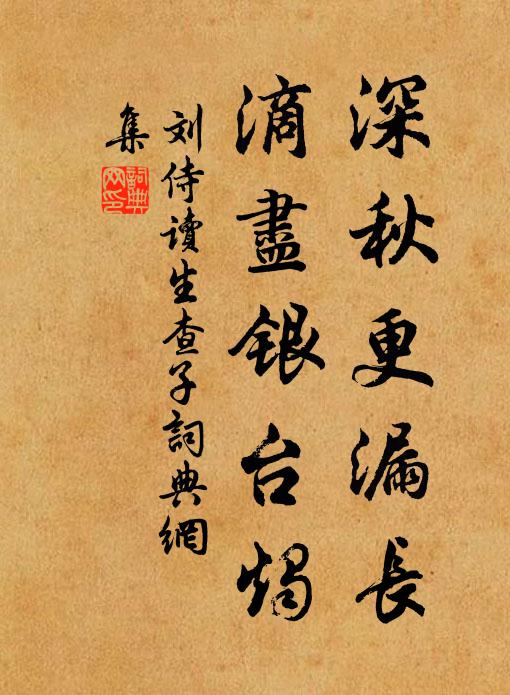 深秋更漏長
滴盡銀台燭
刘侍讀生查子詞典網
集
詞典網印